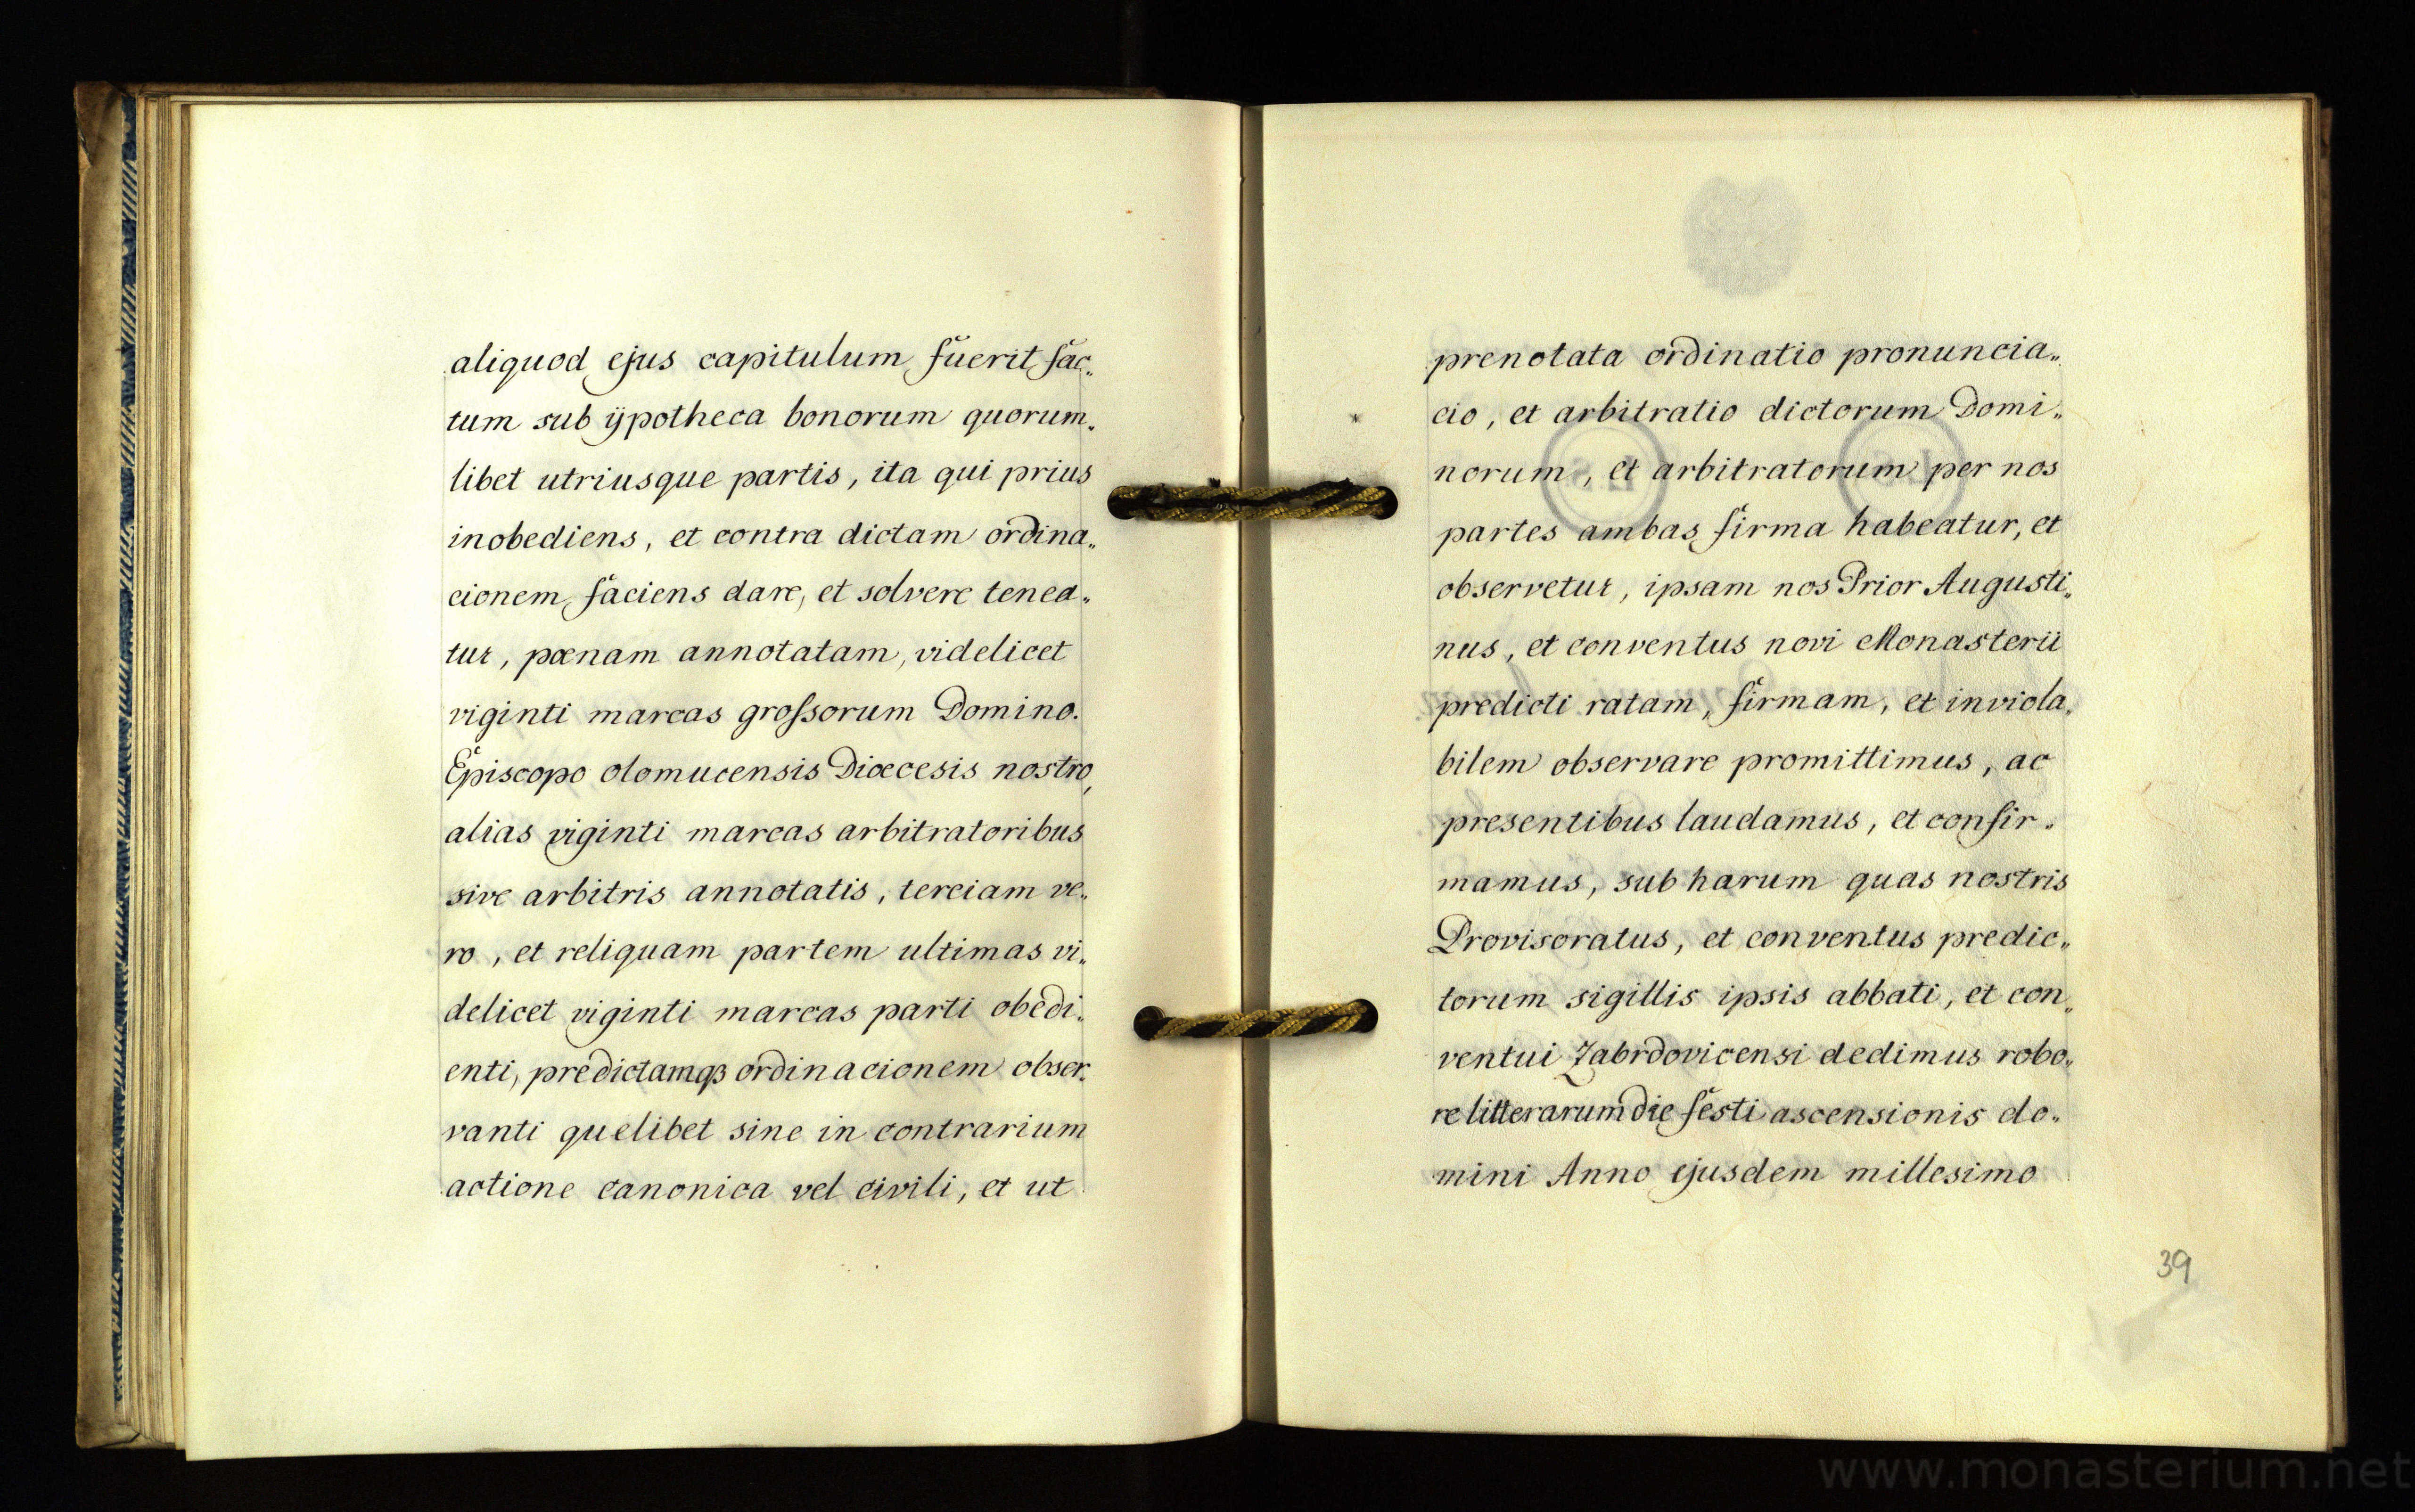 aliquod ejus capitulum fuerit fac„
tum sub ÿpotheca bonorum quorum„
libet utriusque partis, ita qui prius
inobediens, et contra dictam ordina„
cionem faciens dare, et solvere tenea„
tur, pœnam annotatam, videlicet
viginti marcas groſsorum Domino.
Episcopo olomucensis Diœcesis nostro,
alias viginti marcas arbitratoribus
sive arbitris annotatis, terciam ve„
ro, et reliquam partem ultimas vi„
delicet viginti marcas parti obedi„
enti, predictamqꝫ ordinacionem obser„
vanti quelibet sine in contrarium
actione canonica vel civili, et ut
prenotata ordinatio pronuncia„
cio, et arbitratio dictorum Domi„
norum, et arbitratorum per nos
partes ambas firma habeatur, et
observetur, ipsam nos Prior Augusti„
nus, et conventus novi Monasterii
predicti ratam, firmam, et inviola„
bilem observare promittimus, ac
presentibus laudamus, et confir„
mamus, sub harum quas nostris
Provisoratus, et conventus predic„
torum sigillis ipsis abbati, et con„
ventui Zabrdovicensi dedimus robo„
re litterarum die festi ascensionis do„
mini Anno ejusdem millesimo
39
www.monasterium.net